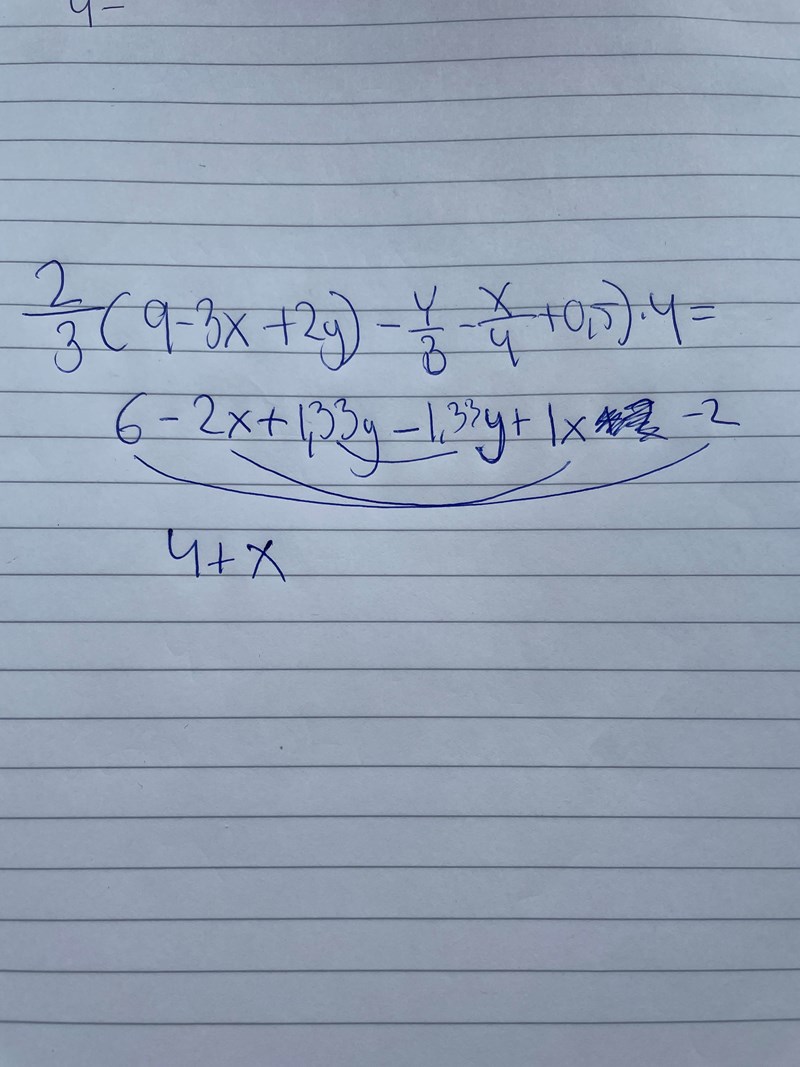 4-
2/3 (9-3x+2y) - y/3 - x/4 + 0,5) · 4 =
6 - 2x + 1,33y - 1,33y + 1x - 2
4 + x